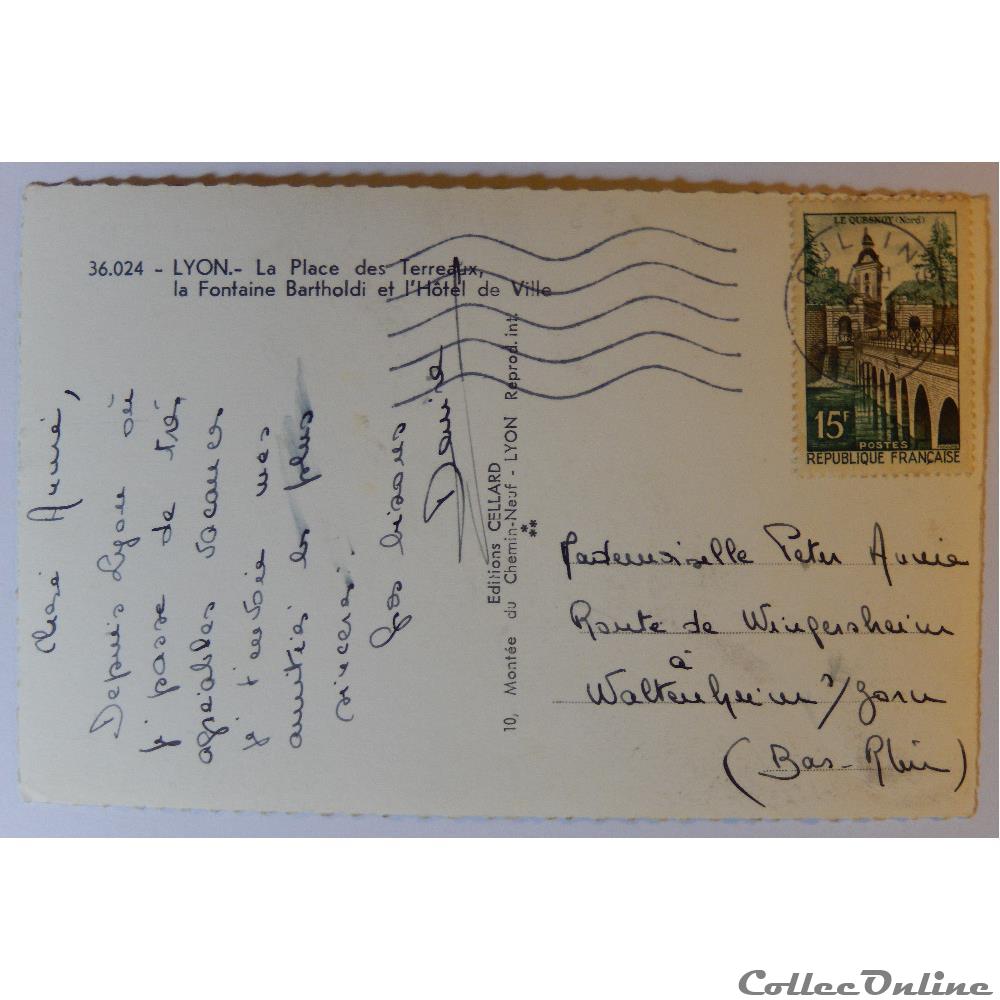 36.024 - LYON.- La Place des Terreaux,
la Fontaine Bartholdi et l'Hôtel de Ville
Chère Annie,
Depuis Lyon où
je passe de très
agréables vacances
je t'envoie mes
amitiés les plus
sincères.
Gros bisous
Denise
Editions CELLARD
10, Montée du Chemin-Neuf - LYON Reprod. int.
**
*
LE QUESNOY (Nord)
OULLINS
15F
POSTES
REPUBLIQUE FRANÇAISE
Mademoiselle Peter Annie
Route de Wingersheim
à
Waltenheim s/Zorn
(Bas-Rhin)
CollecOnline